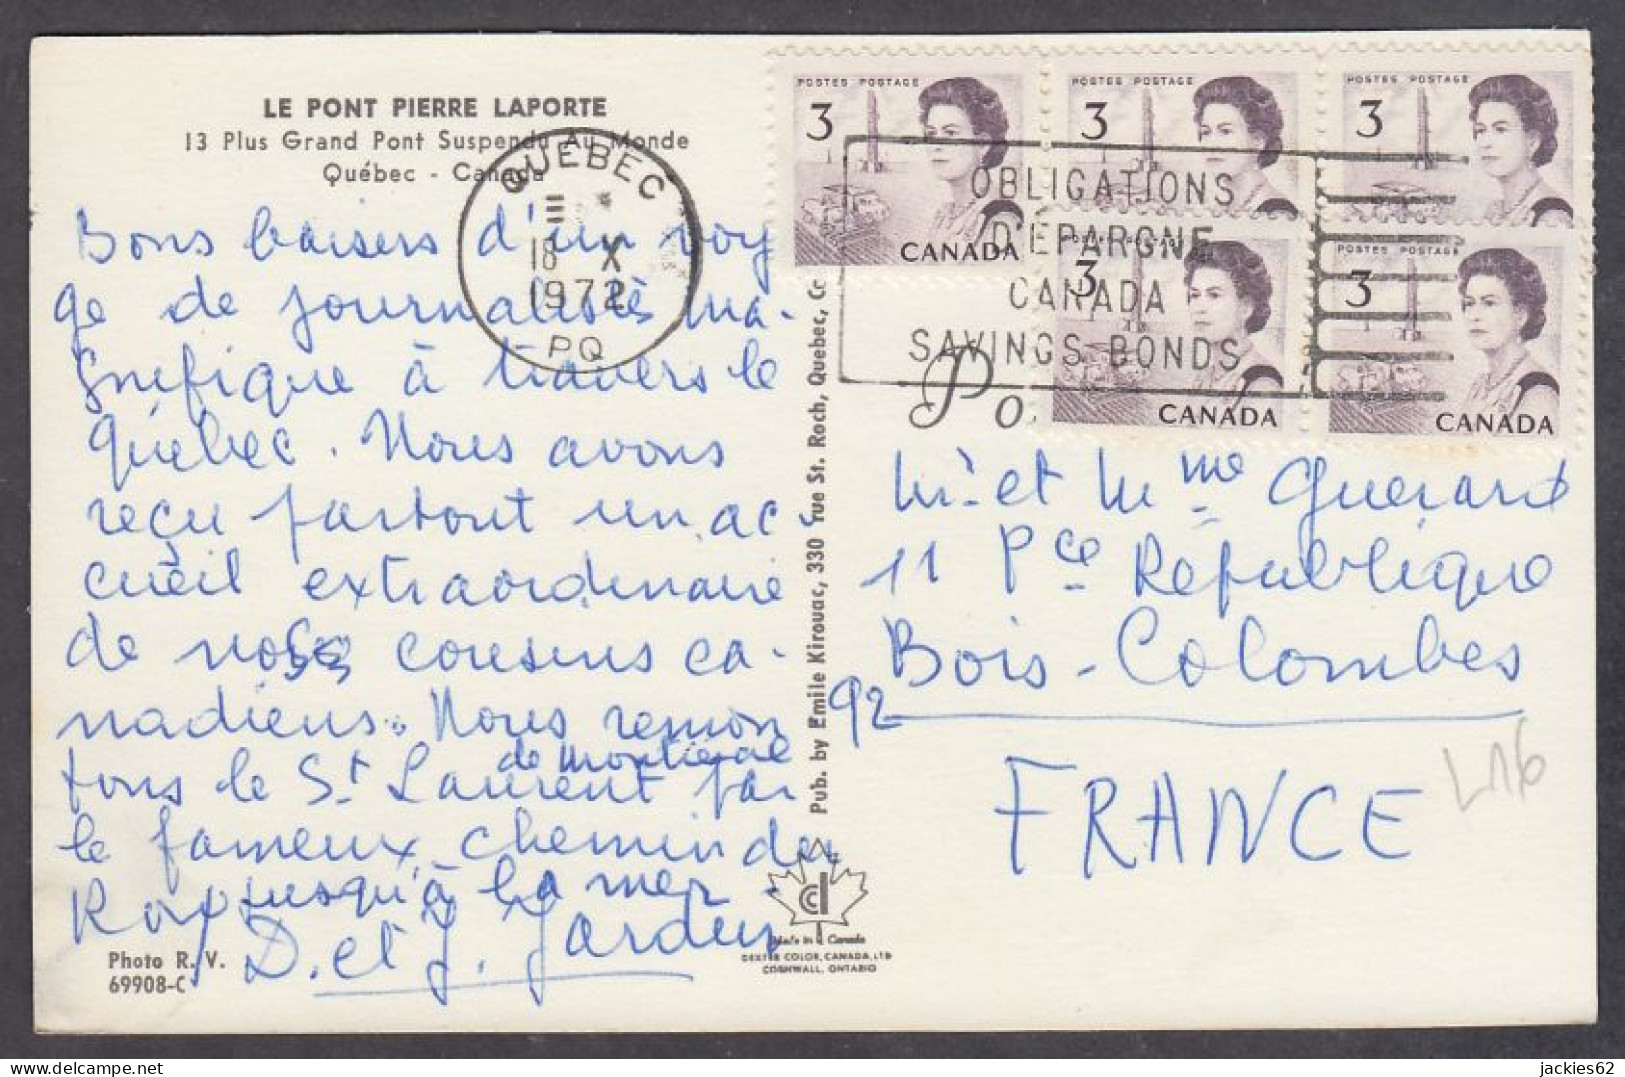 LE PONT PIERRE LAPORTE
13 Plus Grand Pont Suspendu Au Monde
Québec - Canada
QUEBEC
III
18 X
1972
PQ
POSTES POSTAGE
3
CANADA
POSTES POSTAGE
3
POSTES POSTAGE
3
POSTES POSTAGE
3
CANADA
POSTES POSTAGE
3
CANADA
OBLIGATIONS
D'EPARGNE
CANADA
SAVINGS BONDS
Po
Bons baisers d'un voya
ge de journalistes ma-
gnifique à travers le
Québec. Nous avons
reçu partout un ac
cueil extraordinaire
de nos cousins ca-
nadiens. Nous remon
tons le St Laurent de Montréal par
le fameux chemin du
Roy jusqu'à la mer.
D. et J. Jardin
Photo R. V.
69908-C
Pub. by Emile Kirouac, 330 rue St. Roch, Quebec, C
Made in Canada
DEXTER COLOR, CANADA, LTD
CORNWALL, ONTARIO
Mr et Mme Guerard
11 Pce République
Bois-Colombes
92
FRANCE
L16
jackies62